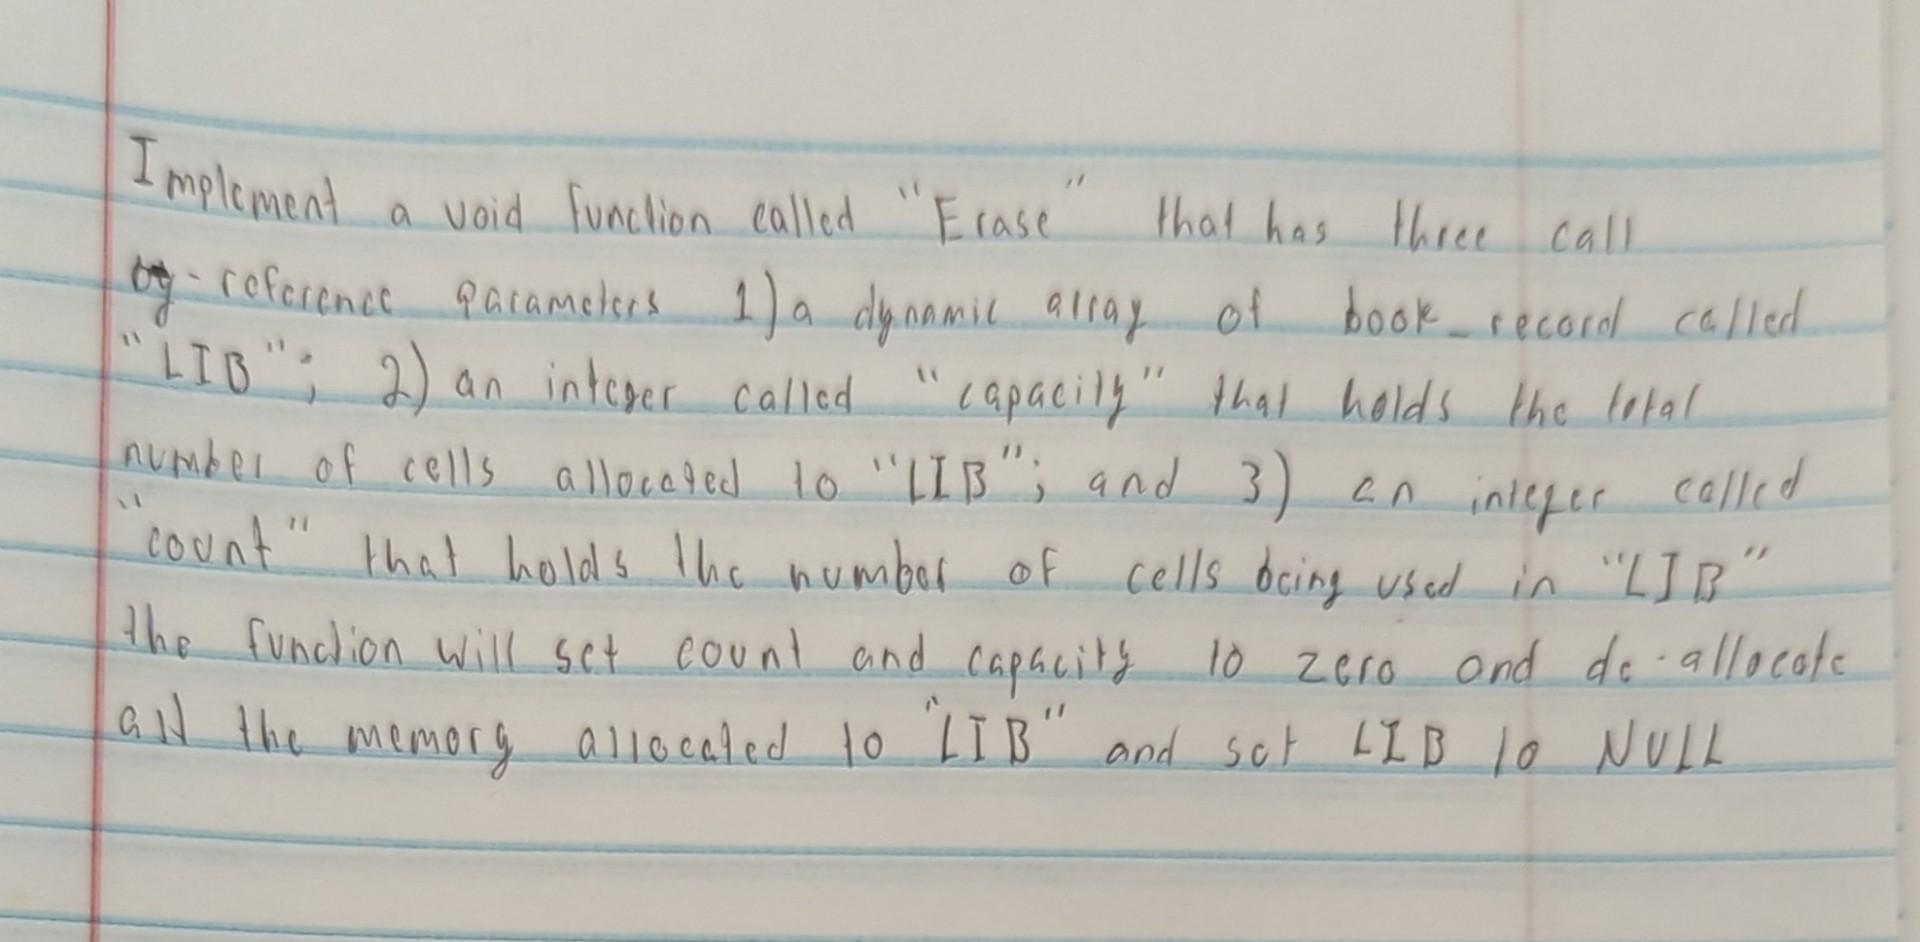 Implement a void function called "Erase" that has three call
by-reference parameters 1) a dynamic array of book_record called
"LIB"; 2) an integer called "capacity" that holds the total
number of cells allocated to "LIB"; and 3) an integer called
"count" that holds the number of cells being used in "LIB"
the function will set count and capacity to zero and de-allocate
all the memory allocated to "LIB" and set LIB to NULL